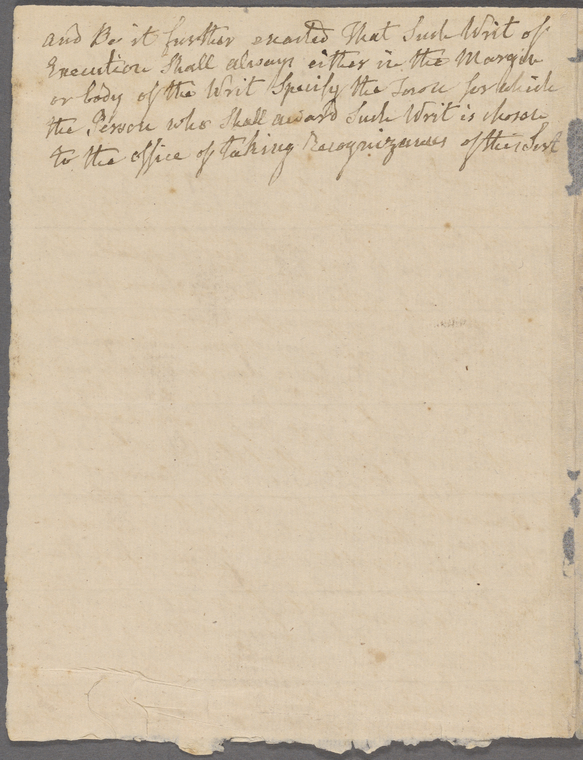 and Be it further enacted That Such Writ of
Execution Shall always either in the Margin
or body of the Writ Specify the Town for which
the Person who Shall award Such Writ is chosen
to the office of taking Recognizances of this Sort